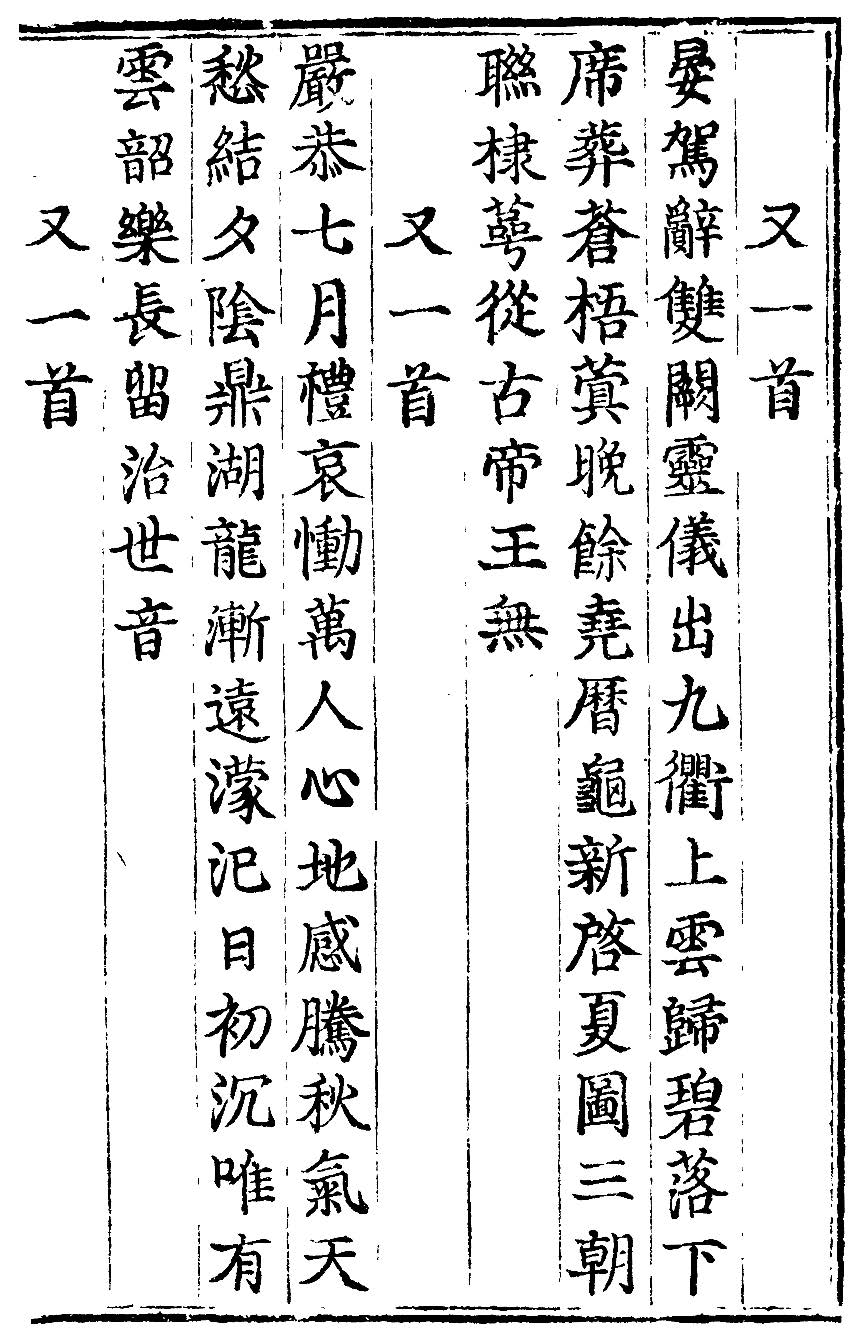 又一首
晏駕辭雙闕靈儀出九衢上雲歸碧落下
席葬蒼梧蓂晚餘堯曆龜新啓夏圖三朝
聯棣萼從古帝王無
又一首
嚴恭七月禮哀慟萬人心地感騰秋氣天
愁結夕陰鼎湖龍漸遠濛汜日初沉唯有
雲韶樂長留治世音
又一首